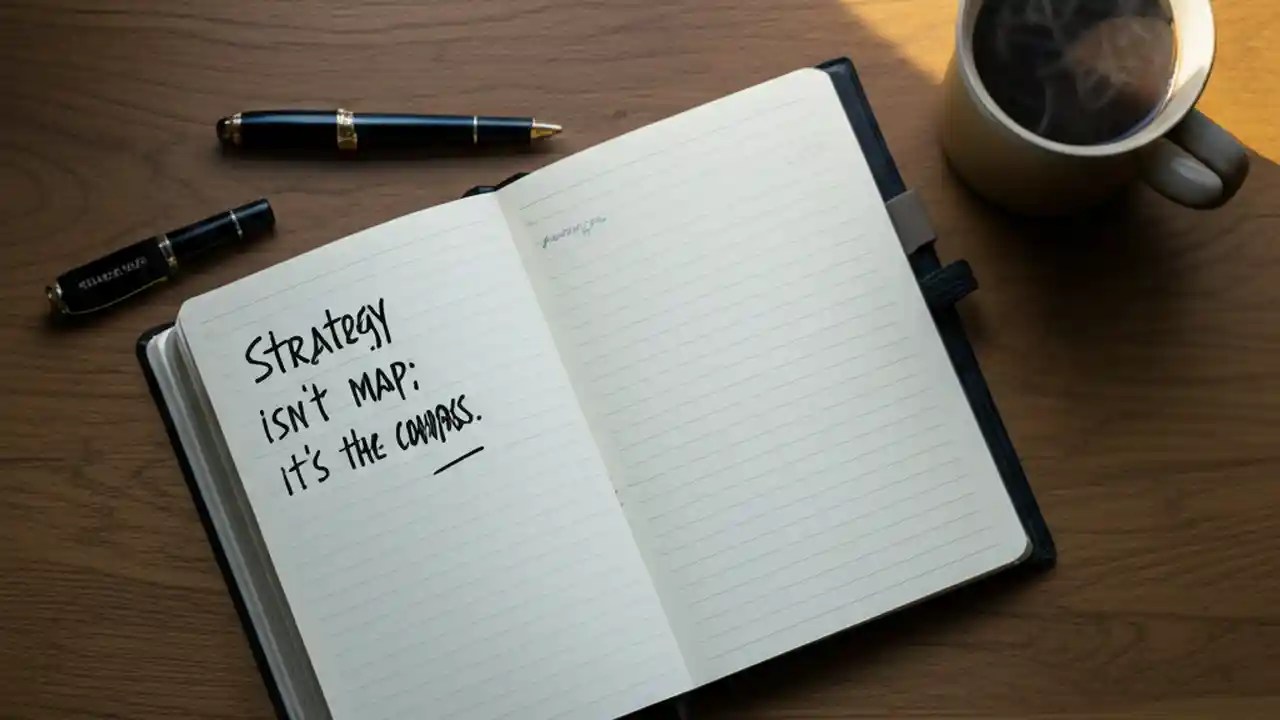 STRATEGY
ISN'T MAP;
IT'S THE COMPASS.